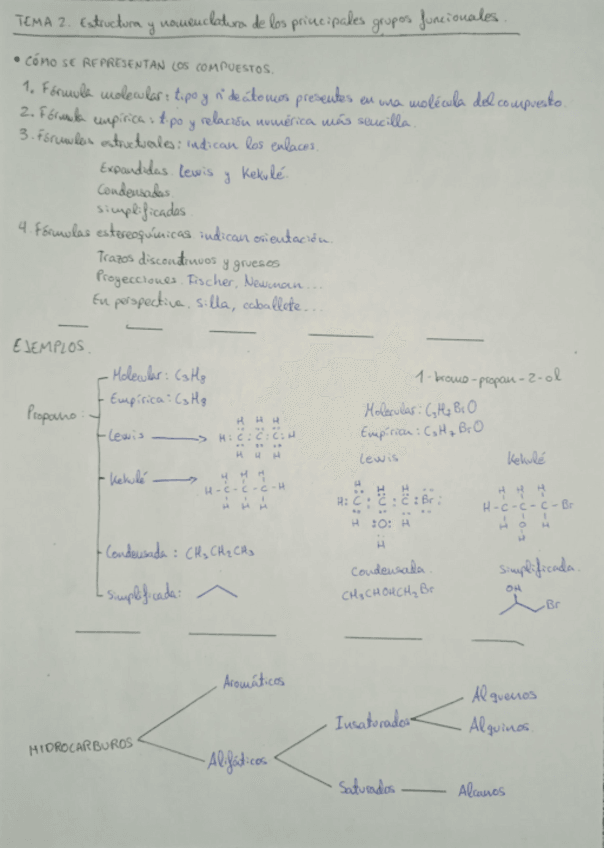 TEMA 2. Estructura y nomenclatura de los principales grupos funcionales.
• CÓMO SE REPRESENTAN LOS COMPUESTOS.
1. Fórmula molecular: tipo y nº de átomos presentes en una molécula del compuesto.
2. Fórmula empírica: tipo y relación numérica más sencilla.
3. Fórmulas estructurales: indican los enlaces.
Expandidas. Lewis y Kekulé.
Condensadas
simplificadas
4. Fórmulas estereoquímicas indican orientación.
Trazos discontinuos y gruesos
Proyecciones. Fischer, Newman...
En perspectiva, silla, caballete...
EJEMPLOS.
Propano:
Molecular: C3H8
Empírica: C3H8
Lewis
H H H
H : C : C : C : H
H H H
Kekulé
H H H
H-C-C-C-H
H H H
Condensada: CH3CH2CH3
Simplificada:
1-bromo-propan-2-ol
Molecular: C3H7BrO
Empírica: C3H7BrO
Lewis
H H H
H : C : C : C : Br :
H :O: H
H
Kekulé
H H H
H-C-C-C-Br
H O H
H
Condensada.
CH3CHOHCH2Br
simplificada.
OH
Br
HIDROCARBUROS
Aromáticos
Alifáticos
Insaturados
Alquenos
Alquinos
Saturados
Alcanos